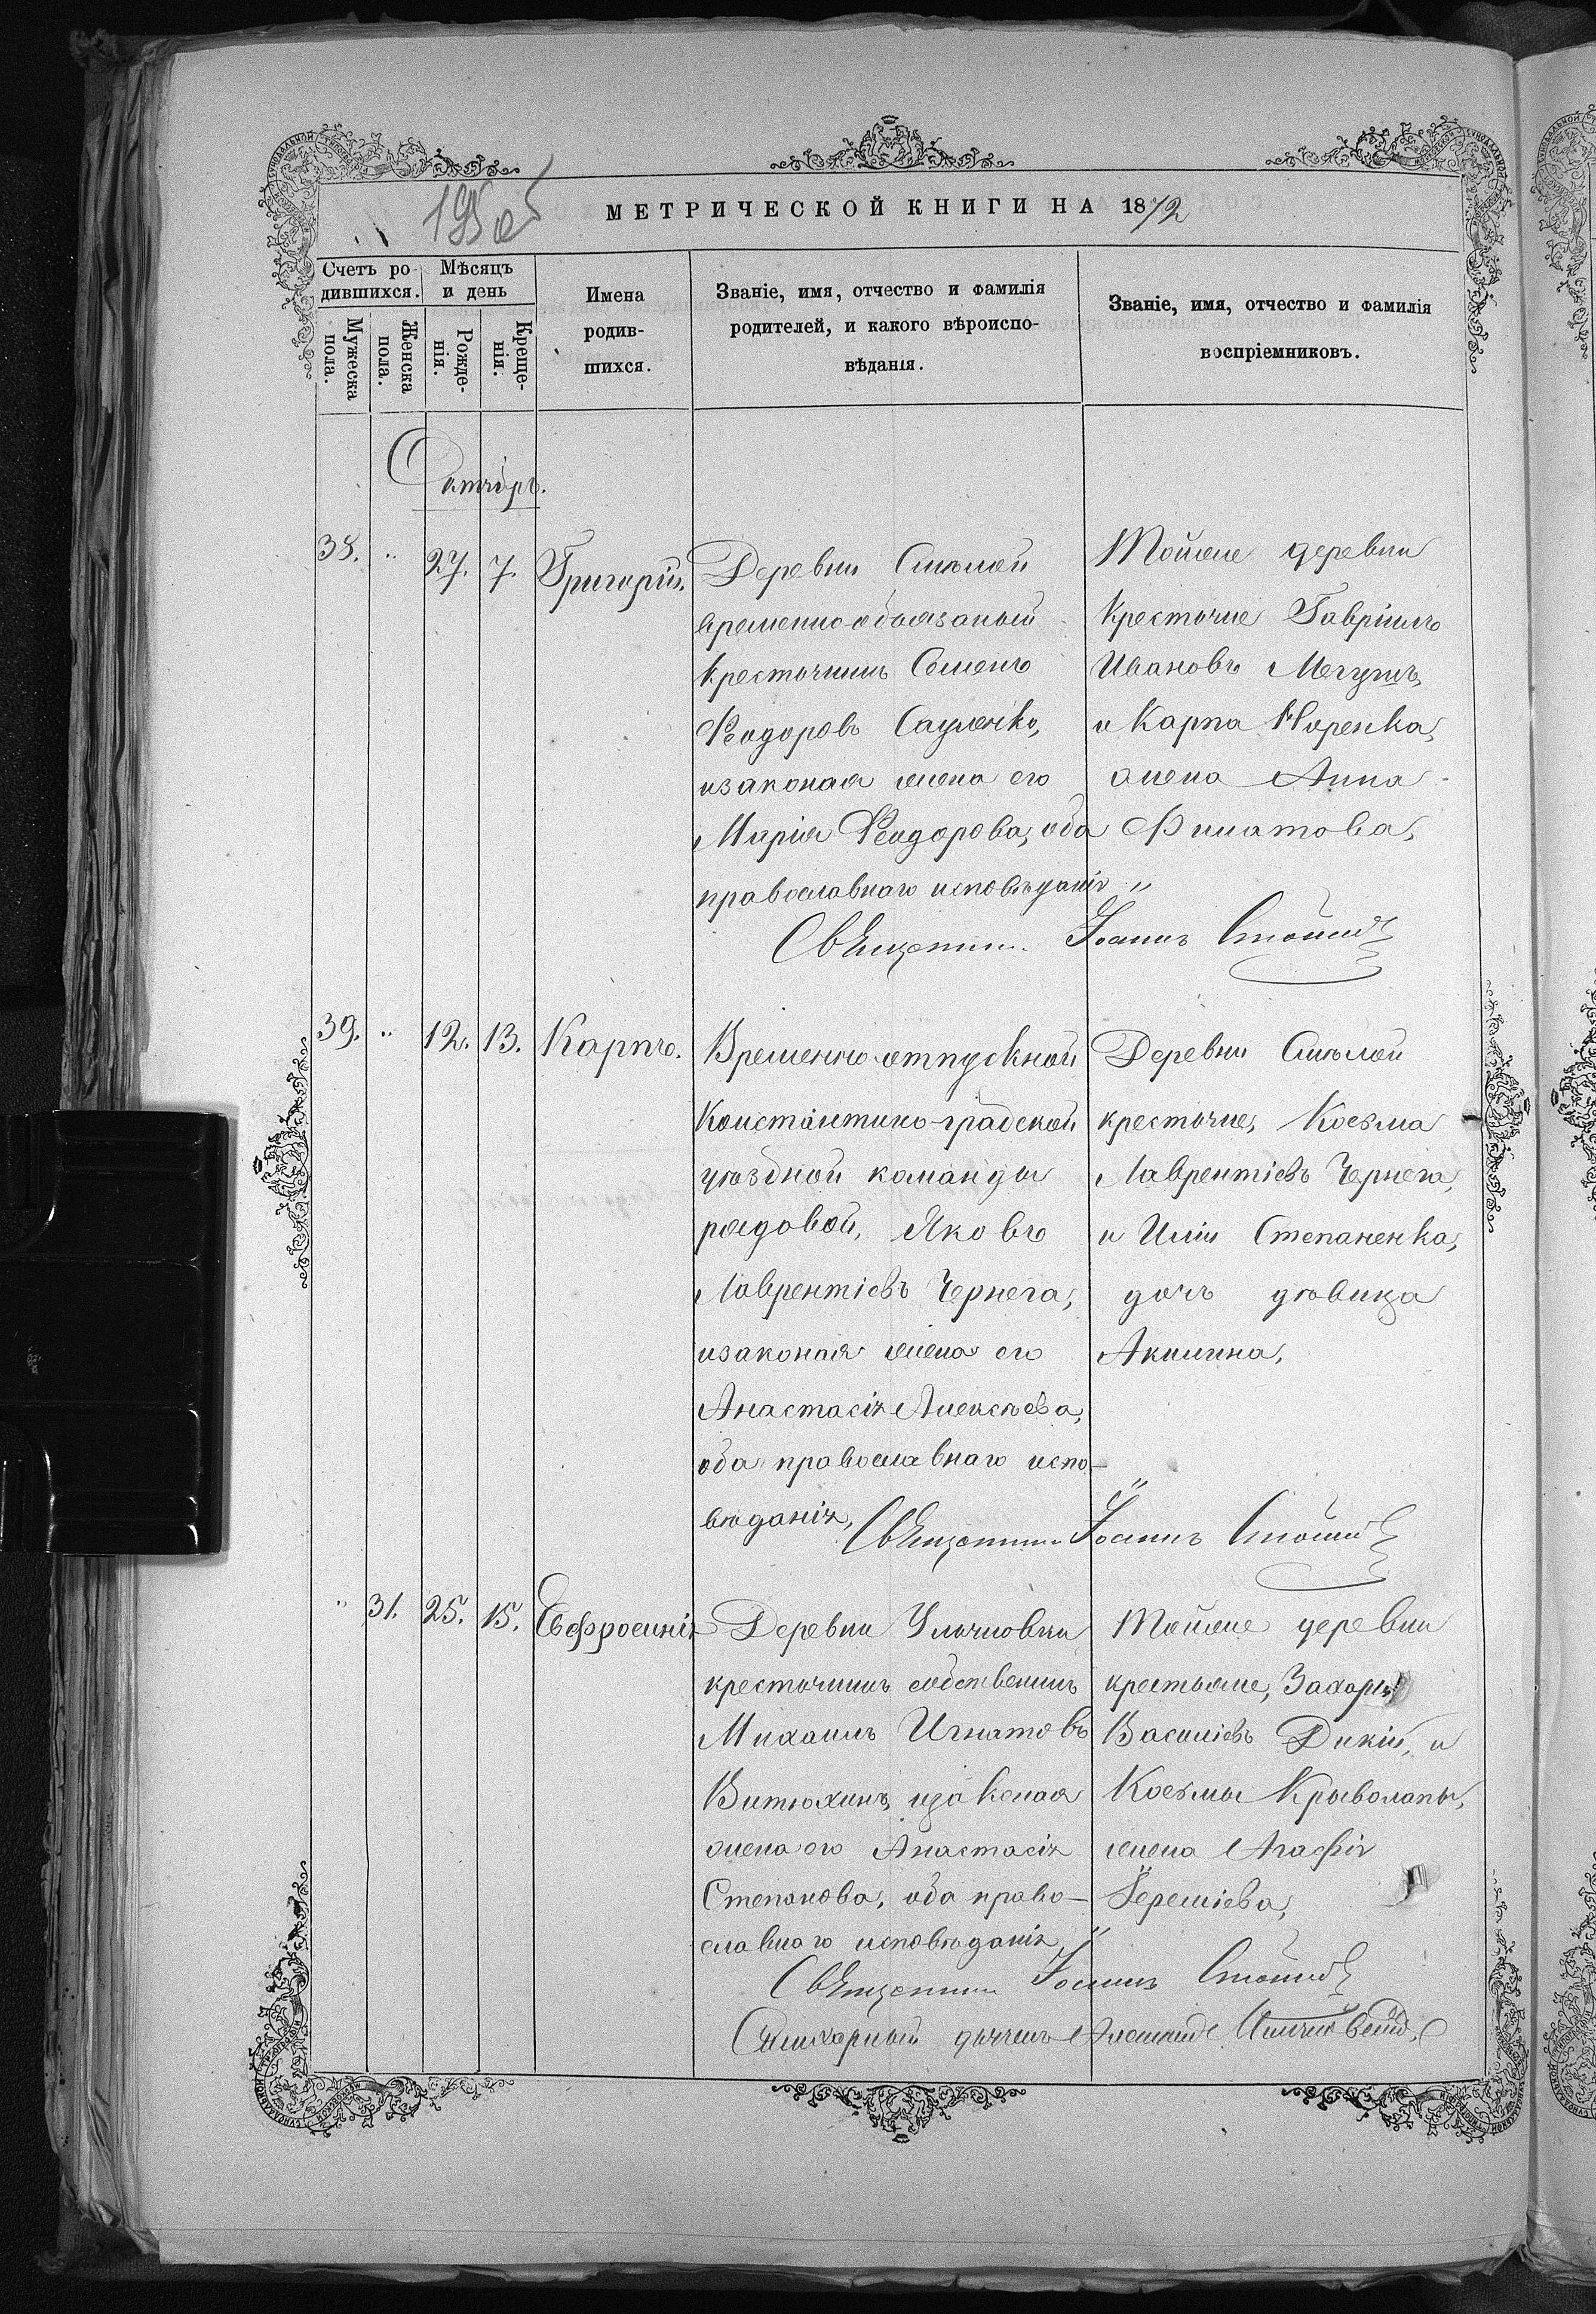 195 об
МЕТРИЧЕСКОЙ КНИГИ НА 1872
Счетъ ро-
дившихся.
Мужеска пола.
Женска пола.
Мѣсяцъ
и день
Рожде-
нія.
Креще-
нія.
Имена
родив-
шихся.
Званіе, имя, отчество и фамилія
родителей, и какого вѣроиспо-
вѣданія.
Званіе, имя, отчество и фамилія
воспріемниковъ.
38. " 27. 7. Григорій.
Деревни
временно-обязаный
крестьянинъ Семенъ
Ѳеодоровъ
изаконая жена его
Марія Ѳеодорова, оба
православнаго исповѣданія
Тойже деревни
крестьяне Гавріилъ
Ивановъ
и Карпа
жена Анна
Филатова,
Священник Іоаннъ
39. " 12. 13. Карпъ.
Временно-отпускной
Константино-градской
уѣздной команды
рядовой, Яковъ
Лаврентіевъ Чернега,
изаконая жена его
Анастасія Алексѣева,
оба православнаго испо-
вѣданія,
Деревни
крестьяне, Косьма
Лаврентіевъ Чернега,
и Иліи Степаненка,
дочь дѣвица
Акилина,
Священник Іоаннъ
" 31. 25. 15. Евфросинія
Деревни Ульяновки
крестьянинъ собственникъ
Михаилъ Игнатовъ
Витюхинъ, изаконая
жена его Анастасія
Степанова, оба право-
славнаго исповѣданія
Тойже деревни
крестьяне, Захарій
Василіевъ Дикій, и
Косьмы Криволапы,
жена Агафія
Іереміева,
Священник Іоаннъ